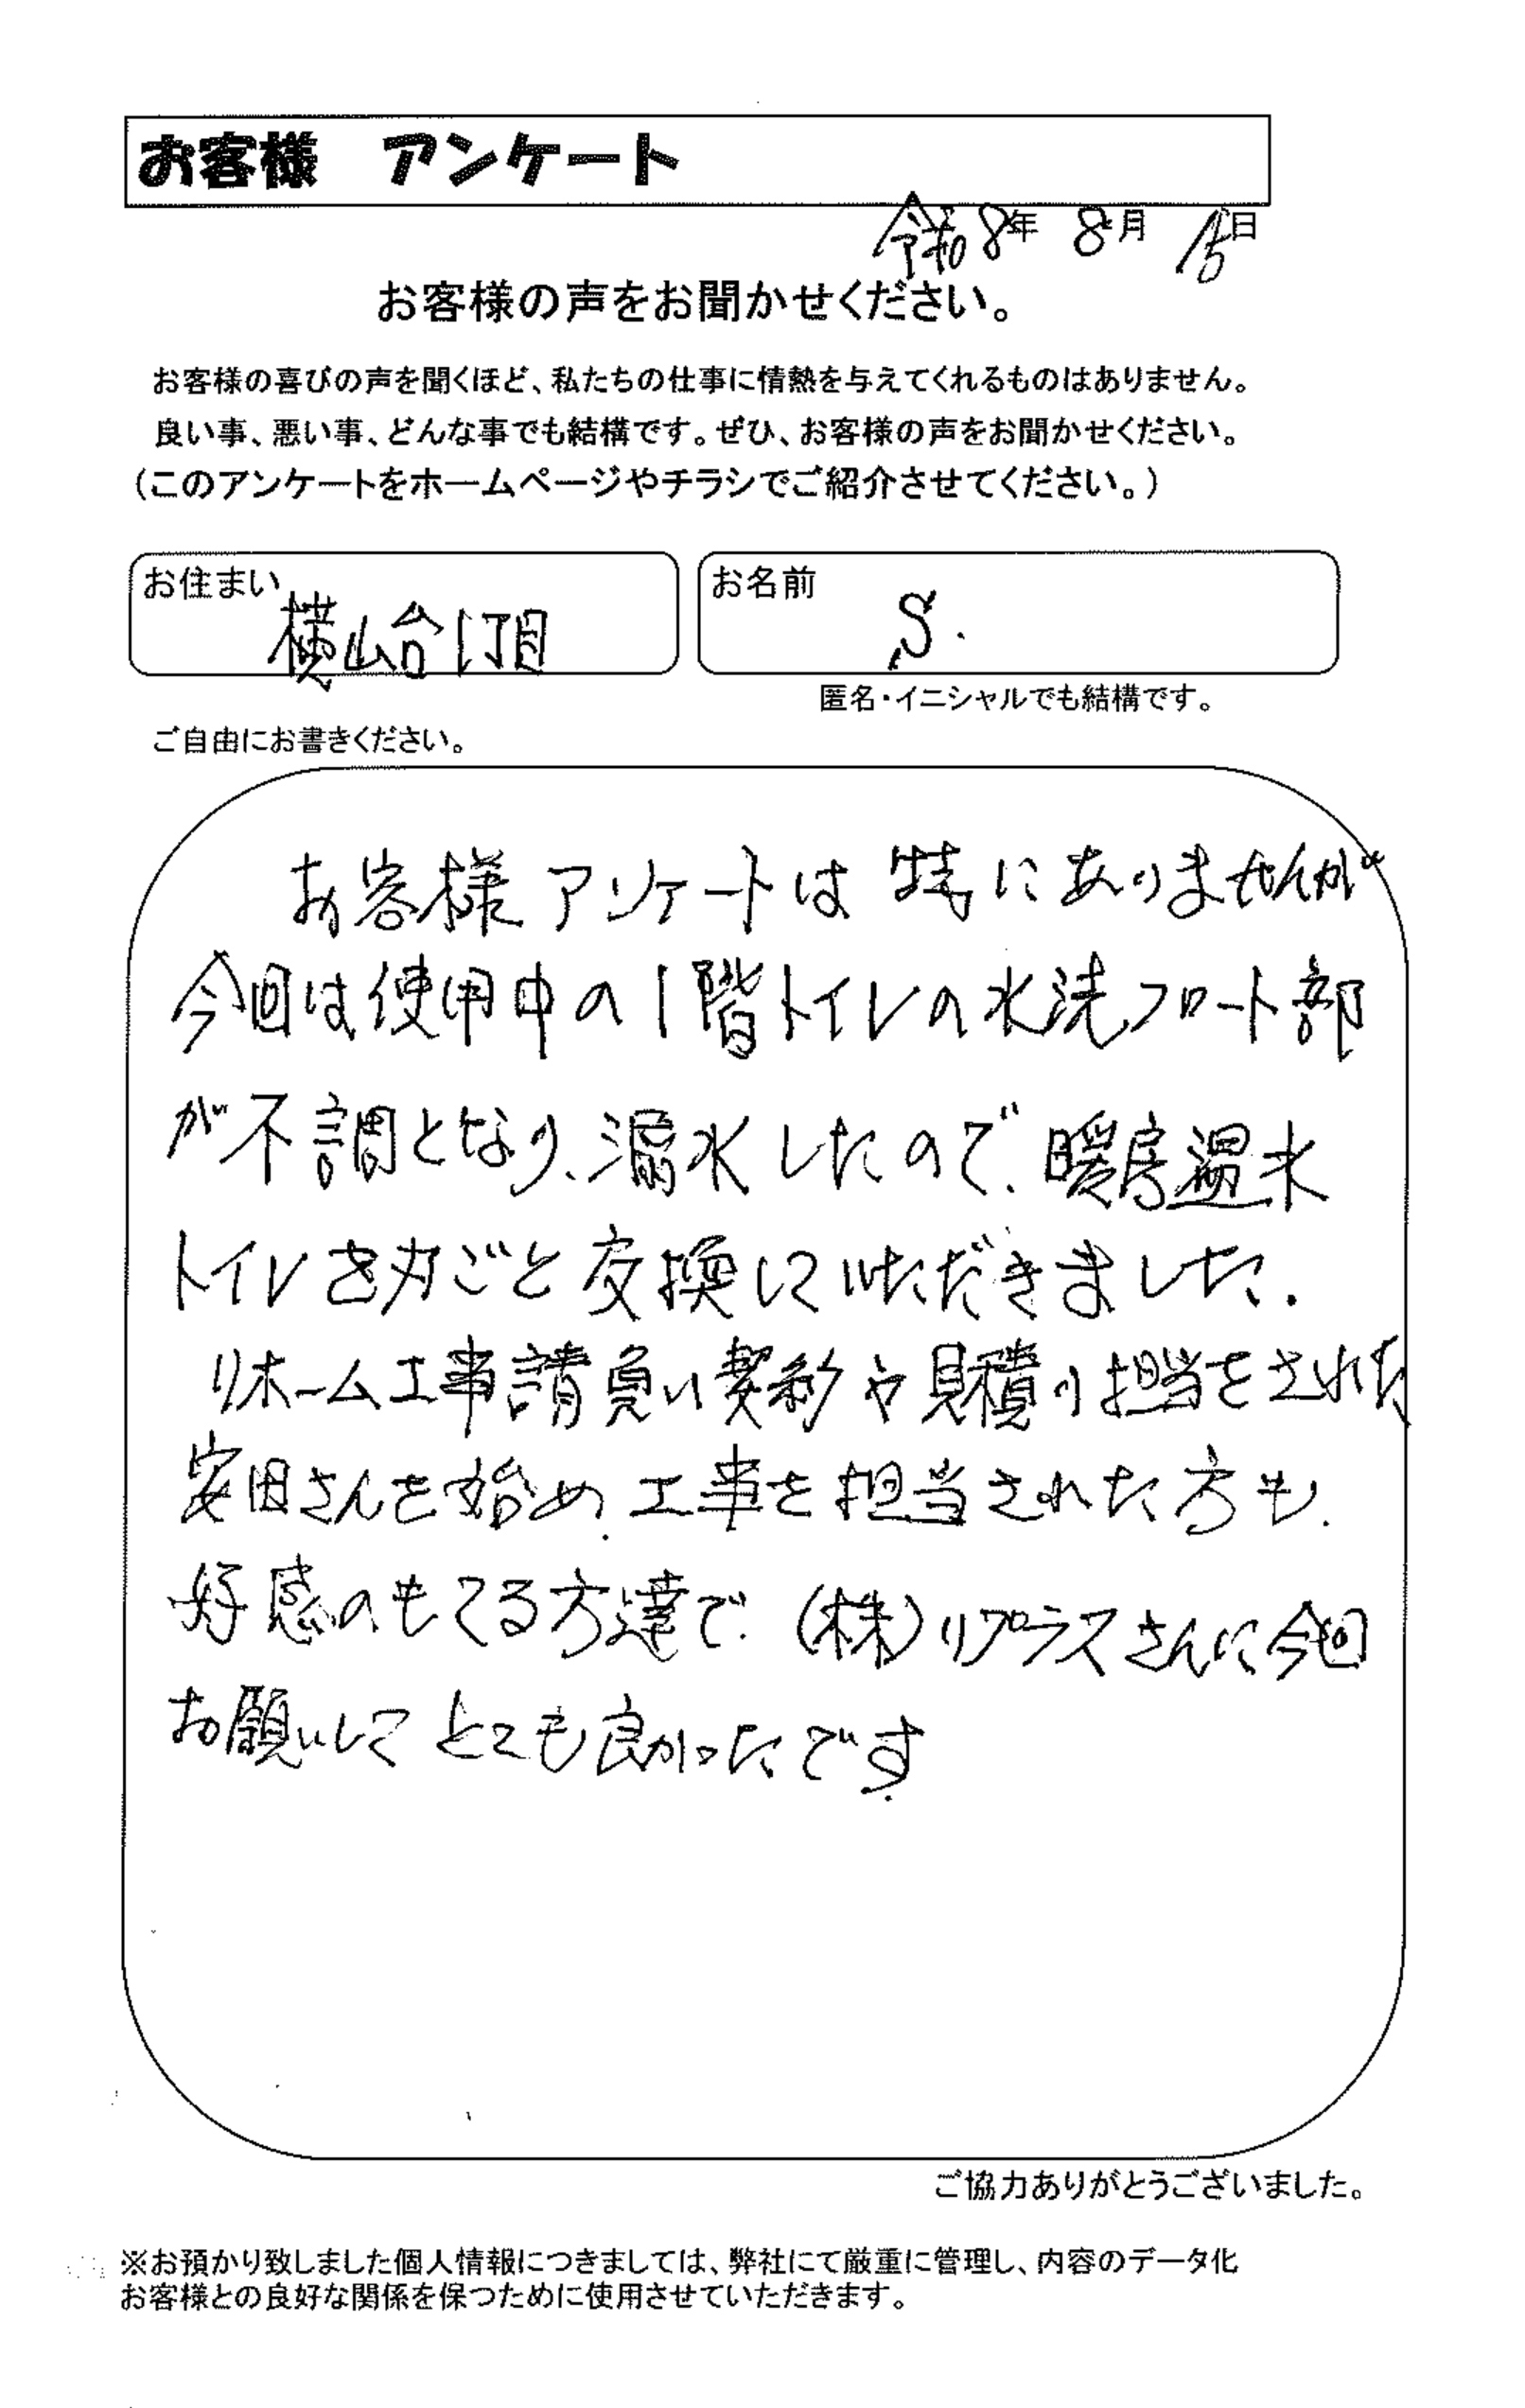 お客様　アンケート
令和8年 8月 15日
お客様の声をお聞かせください。
お客様の喜びの声を聞くほど、私たちの仕事に情熱を与えてくれるものはありません。
良い事、悪い事、どんな事でも結構です。ぜひ、お客様の声をお聞かせください。
（このアンケートをホームページやチラシでご紹介させてください。）
お住まい 横山台1丁目
お名前 S.
匿名・イニシャルでも結構です。
ご自由にお書きください。
お客様アンケートは 特にありませんが
今回は使用中の1階トイレの水洗フロート部
が不調となり、漏水したので、暖房温水
トイレを丸ごと交換していただきました.
リホーム工事請負い契約や見積り担当をされた
安田さんを始め、工事を担当された方も、
好感のもてる方達で、（株）リプラスさんに今回
お願いして とても良かったです.
ご協力ありがとうございました。
※お預かり致しました個人情報につきましては、弊社にて厳重に管理し、内容のデータ化
お客様との良好な関係を保つために使用させていただきます。